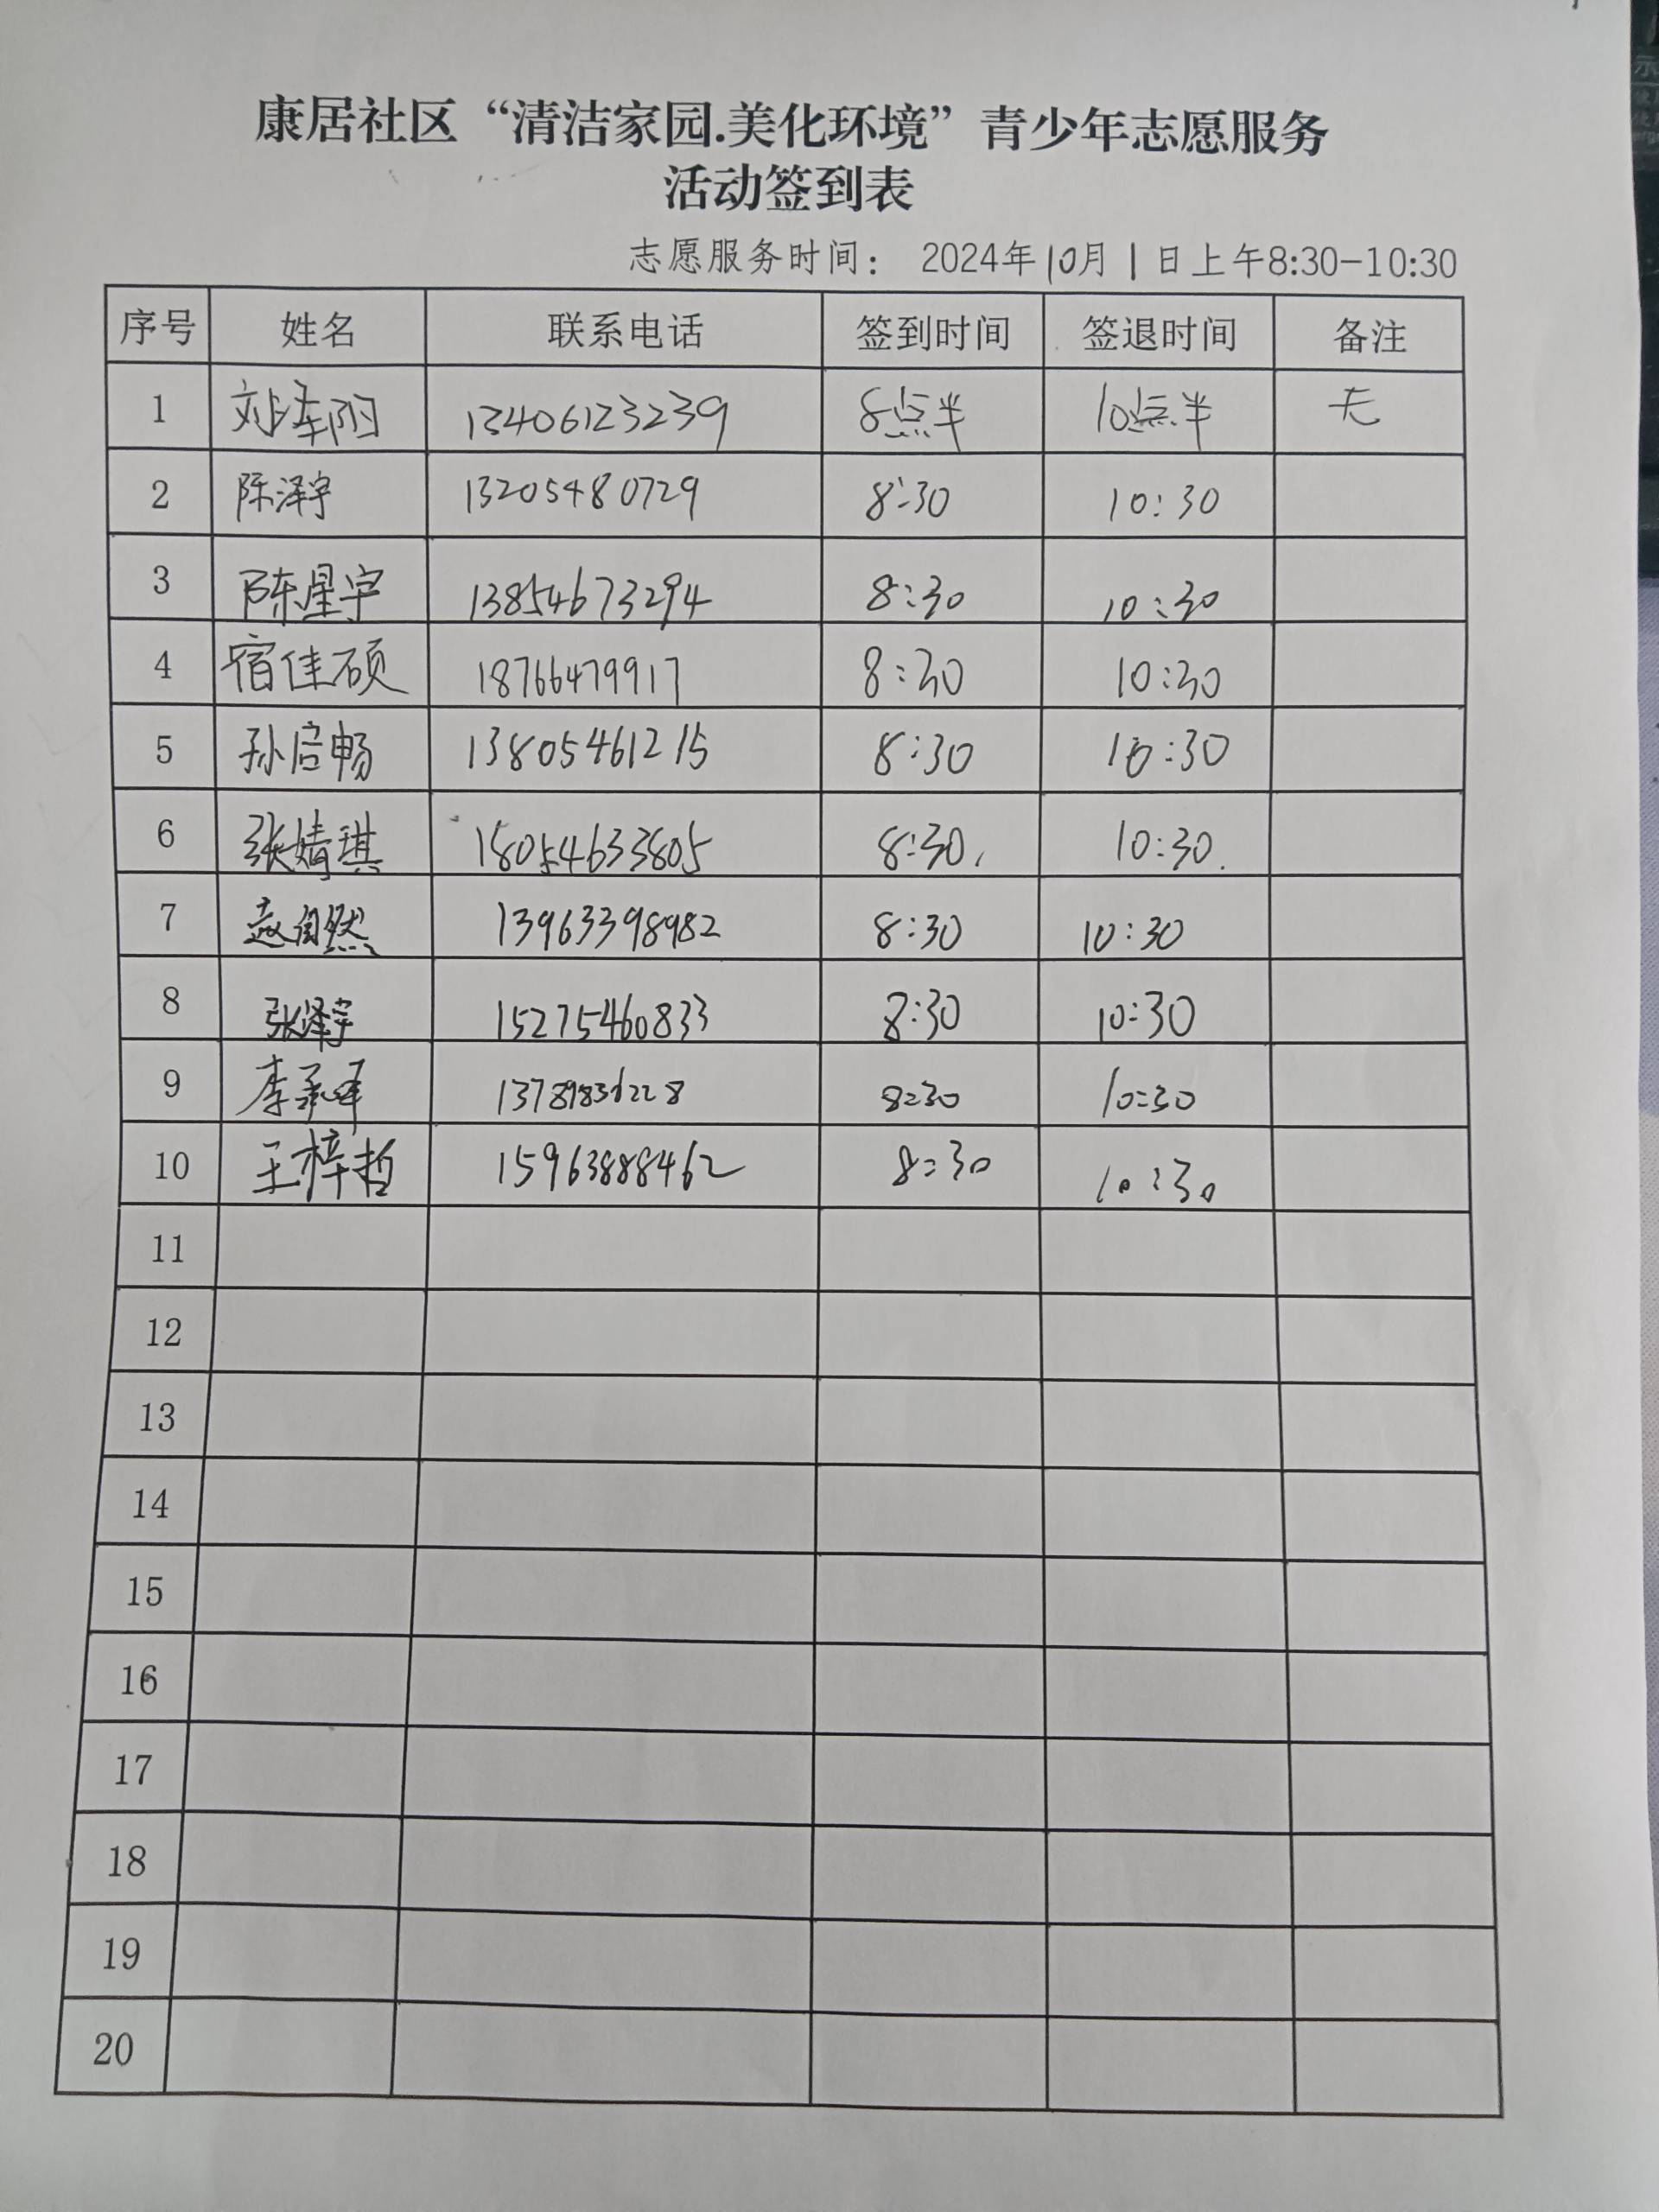 康居社区“清洁家园.美化环境”青少年志愿服务
活动签到表
志愿服务时间： 2024年10月1日上午8:30-10:30
序号 姓名 联系电话 签到时间 签退时间 备注
1 13406123239 8点半 10点半 无
2 陈泽宇 13205480729 8:30 10:30
3 陈星宇 13854673294 8:30 10:30
4 宿佳硕 18766479917 8:30 10:30
5 孙启畅 13805461215 8:30 10:30
6 张婧琪 18054633805 8:30. 10:30.
7 赵自然 13963398982 8:30 10:30
8 张泽宇 15275460833 8:30 10:30
9 李承泽 8:30 10:30
10 王梓哲 15963888462 8:30 10:30
11
12
13
14
15
16
17
18
19
20